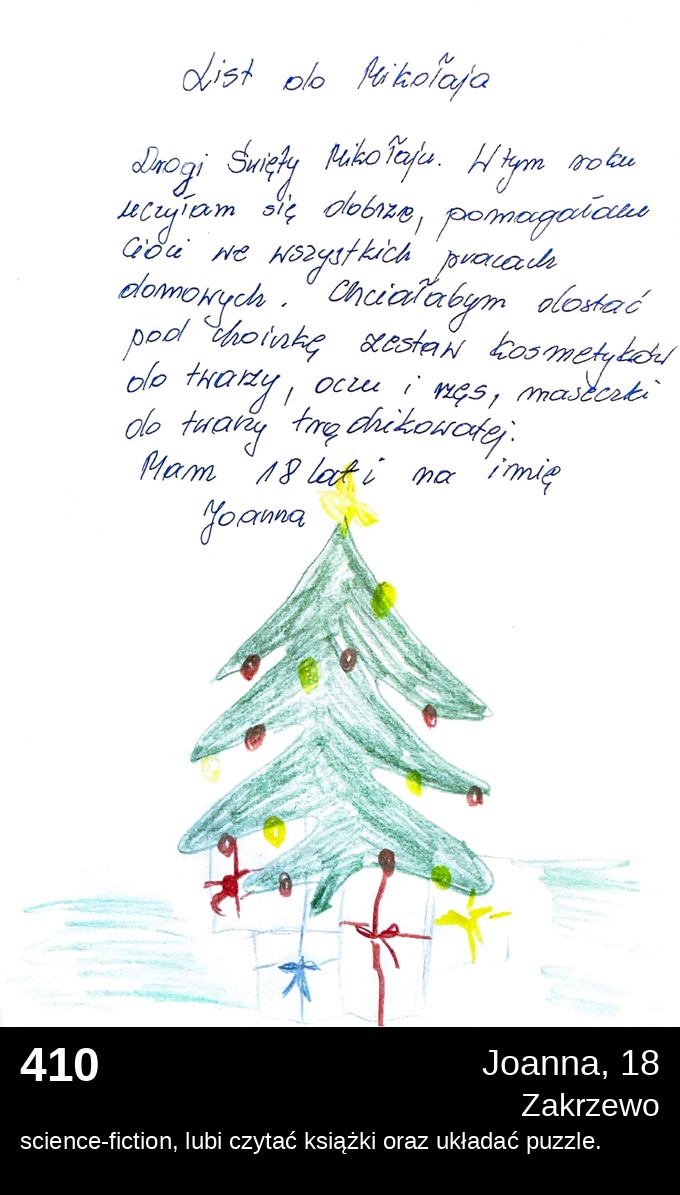 List do Mikołaja
Drogi Święty Mikołaju. W tym roku
uczyłam się dobrze, pomagałam
cioci we wszystkich pracach
domowych. Chciałabym dostać
pod choinkę zestaw kosmetyków
do twarzy, oczu i rzęs, maseczki
do twarzy trądzikowatej.
Mam 18 lat i na imię
Joanna
410
Joanna, 18
Zakrzewo
science-fiction, lubi czytać książki oraz układać puzzle.